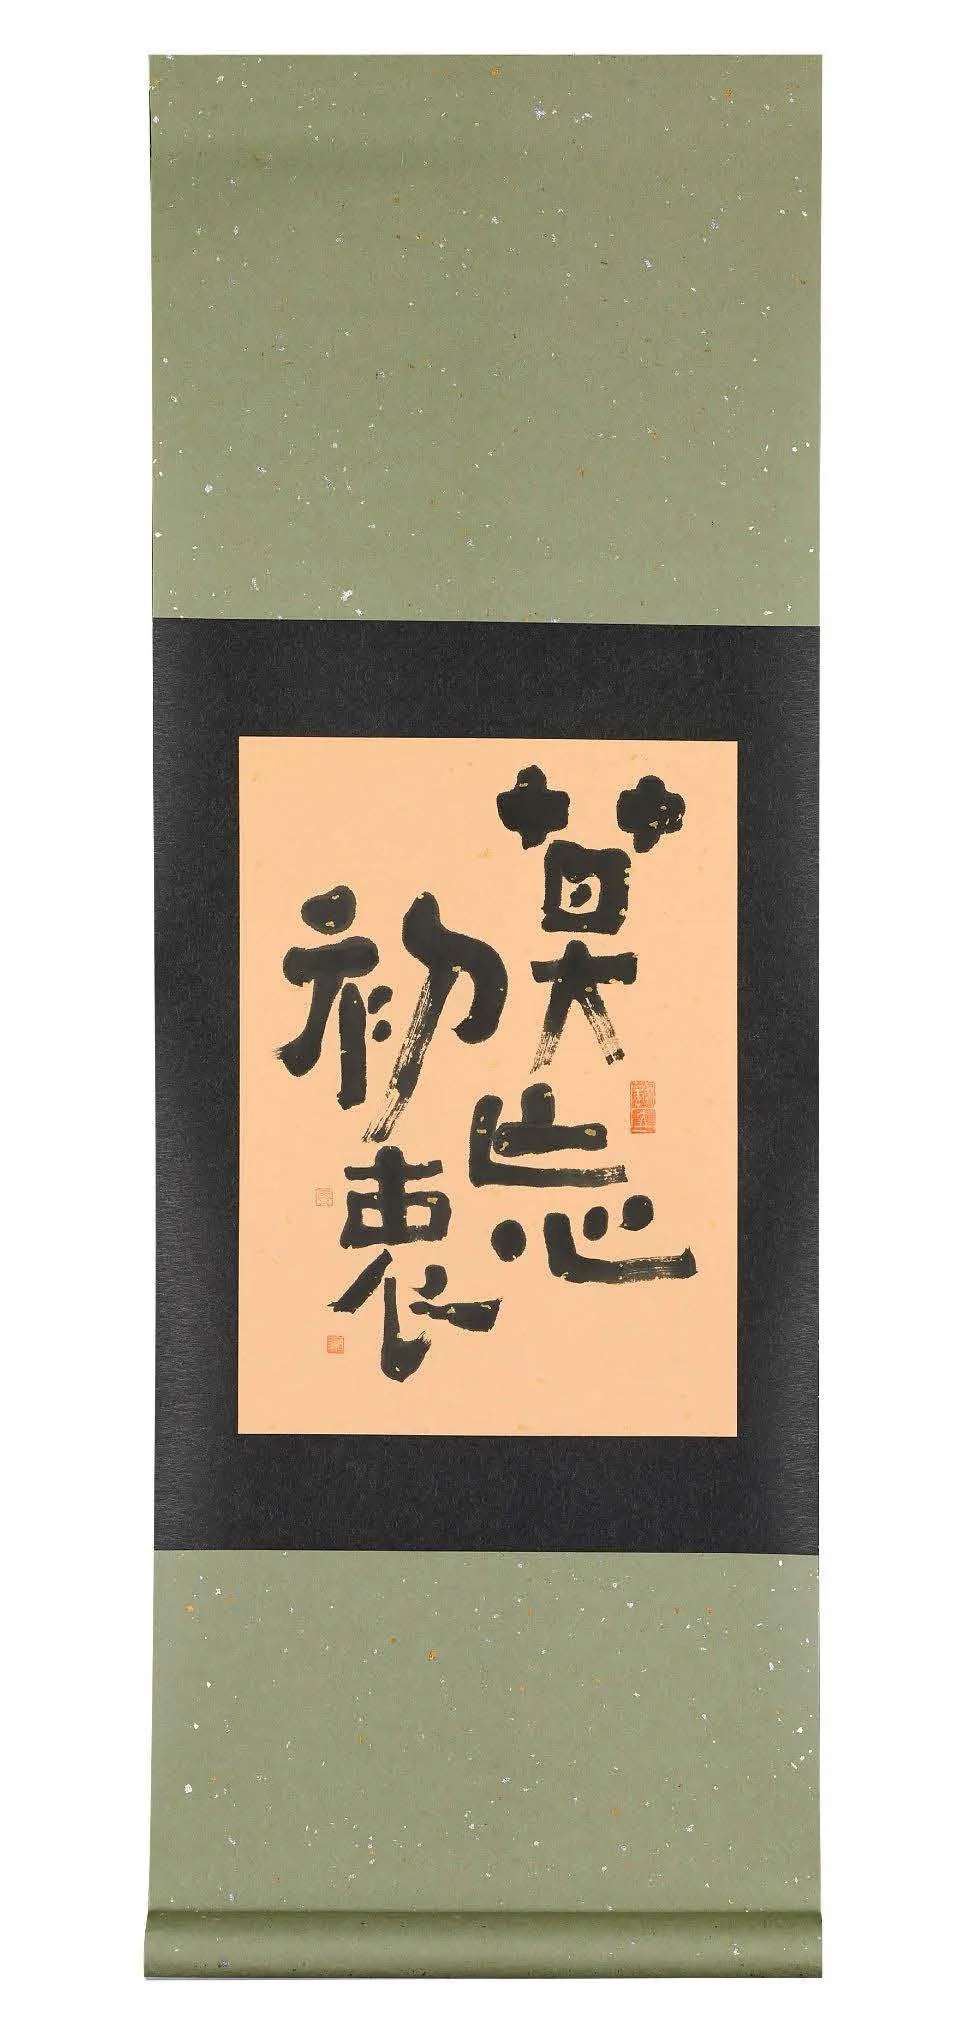 莫忘
初衷